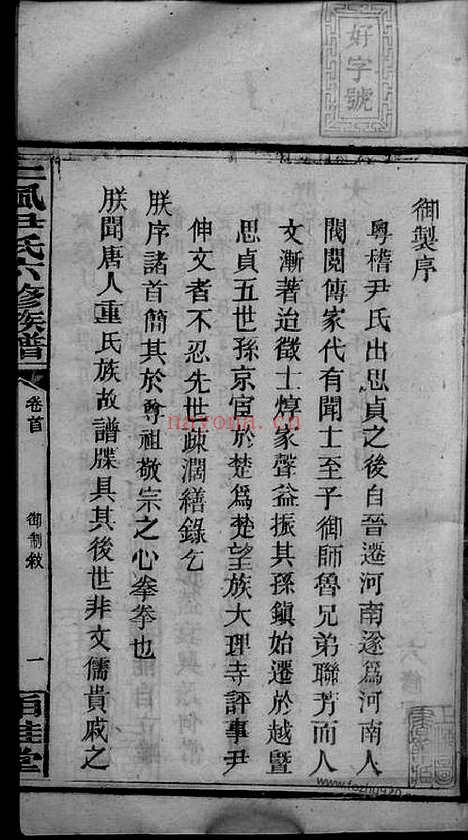 好字號
御製序
粵稽尹氏出思貞之後自晉遷河南遂為河南人
閥閱傳家代有聞士至子御師魯兄弟聯芳而人
文漸著迨徵士惇家聲益振其孫鎮始遷於越暨
思貞五世孫京宦於楚為楚望族大理寺評事尹
伸文者不忍先世疎濶繕錄乞
朕序諸首簡其於尊祖敬宗之心拳拳也
朕聞唐人重氏族故譜牒具其後世非文儒貴戚之
尹氏六修族譜
卷首
御制敘
一
百桂堂
nayona.cn
www.fozhu920.com